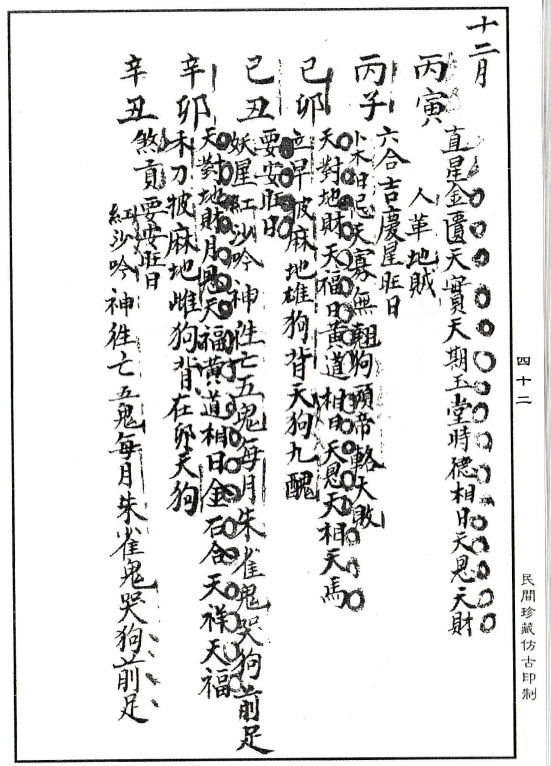 十二月
丙寅
直星金匱天寶天期玉堂時德相日天恩天財
人革地賊
丙子
六合吉慶星旺日
忌天寡無翹狗頭帝輅大敗
己卯
天對地財天福日黃道相日天恩天相天馬
立早破麻地雄狗背天狗九醜
己丑
要安旺日
妖星紅沙吟神往亡五鬼每月朱雀鬼哭狗前足
辛卯
天對地財月恩天福黃道相日金石合天祥天福
禾刀破麻地雌狗背在卯天狗
辛丑
煞貢要安旺日
紅沙吟神往亡五鬼每月朱雀鬼哭狗前足
四十二
民間珍藏仿古印制